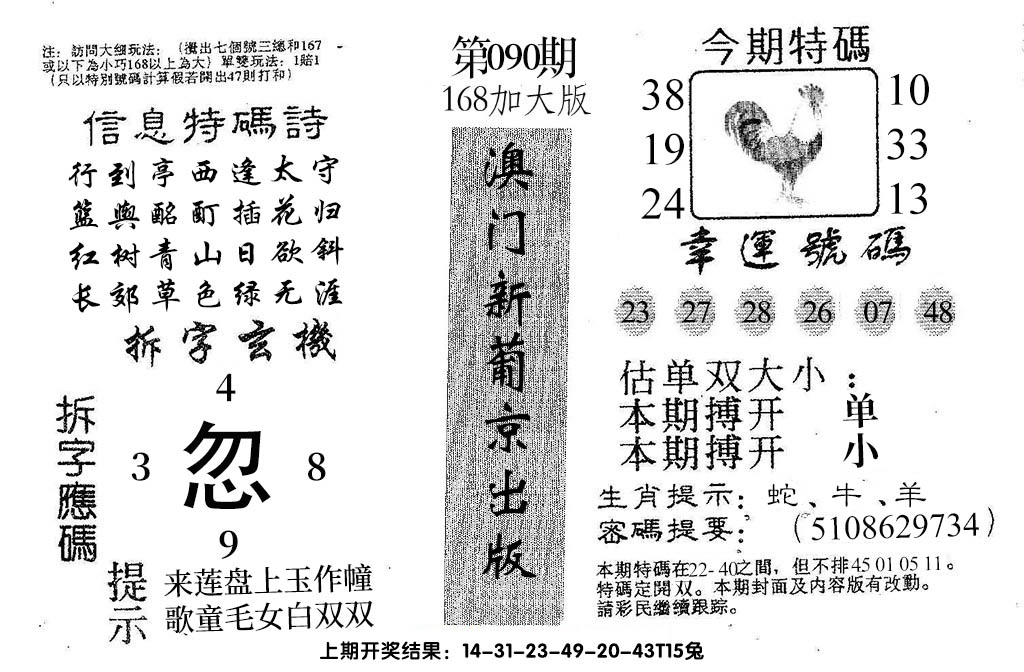 注：訪問大细玩法：（攪出七個號三總和167
或以下為小巧168以上為大）單雙玩法：1賠1
（只以特别號碼計算假若開出47則打和）
信息特碼詩
行到亭西逢太守
籃輿酩酊插花归
红树青山日欲斜
长郊草色绿无涯
拆字玄機
拆字應碼
4
3 忽 8
9
提示
来莲盘上玉作幢
歌童毛女白双双
第090期
168加大版
澳门新葡京出版
今期特碼
38 10
19 33
24 13
幸運號碼
23 27 28 26 07 48
估单双大小：
本期搏开 单
本期搏开 小
生肖提示：蛇、牛、羊
密碼提要：（5108629734）
本期特碼在22-40之間，但不排45 01 05 11。
特碼定開双。本期封面及内容版有改動。
請彩民繼續跟踪。
上期开奖结果：14-31-23-49-20-43T15兔